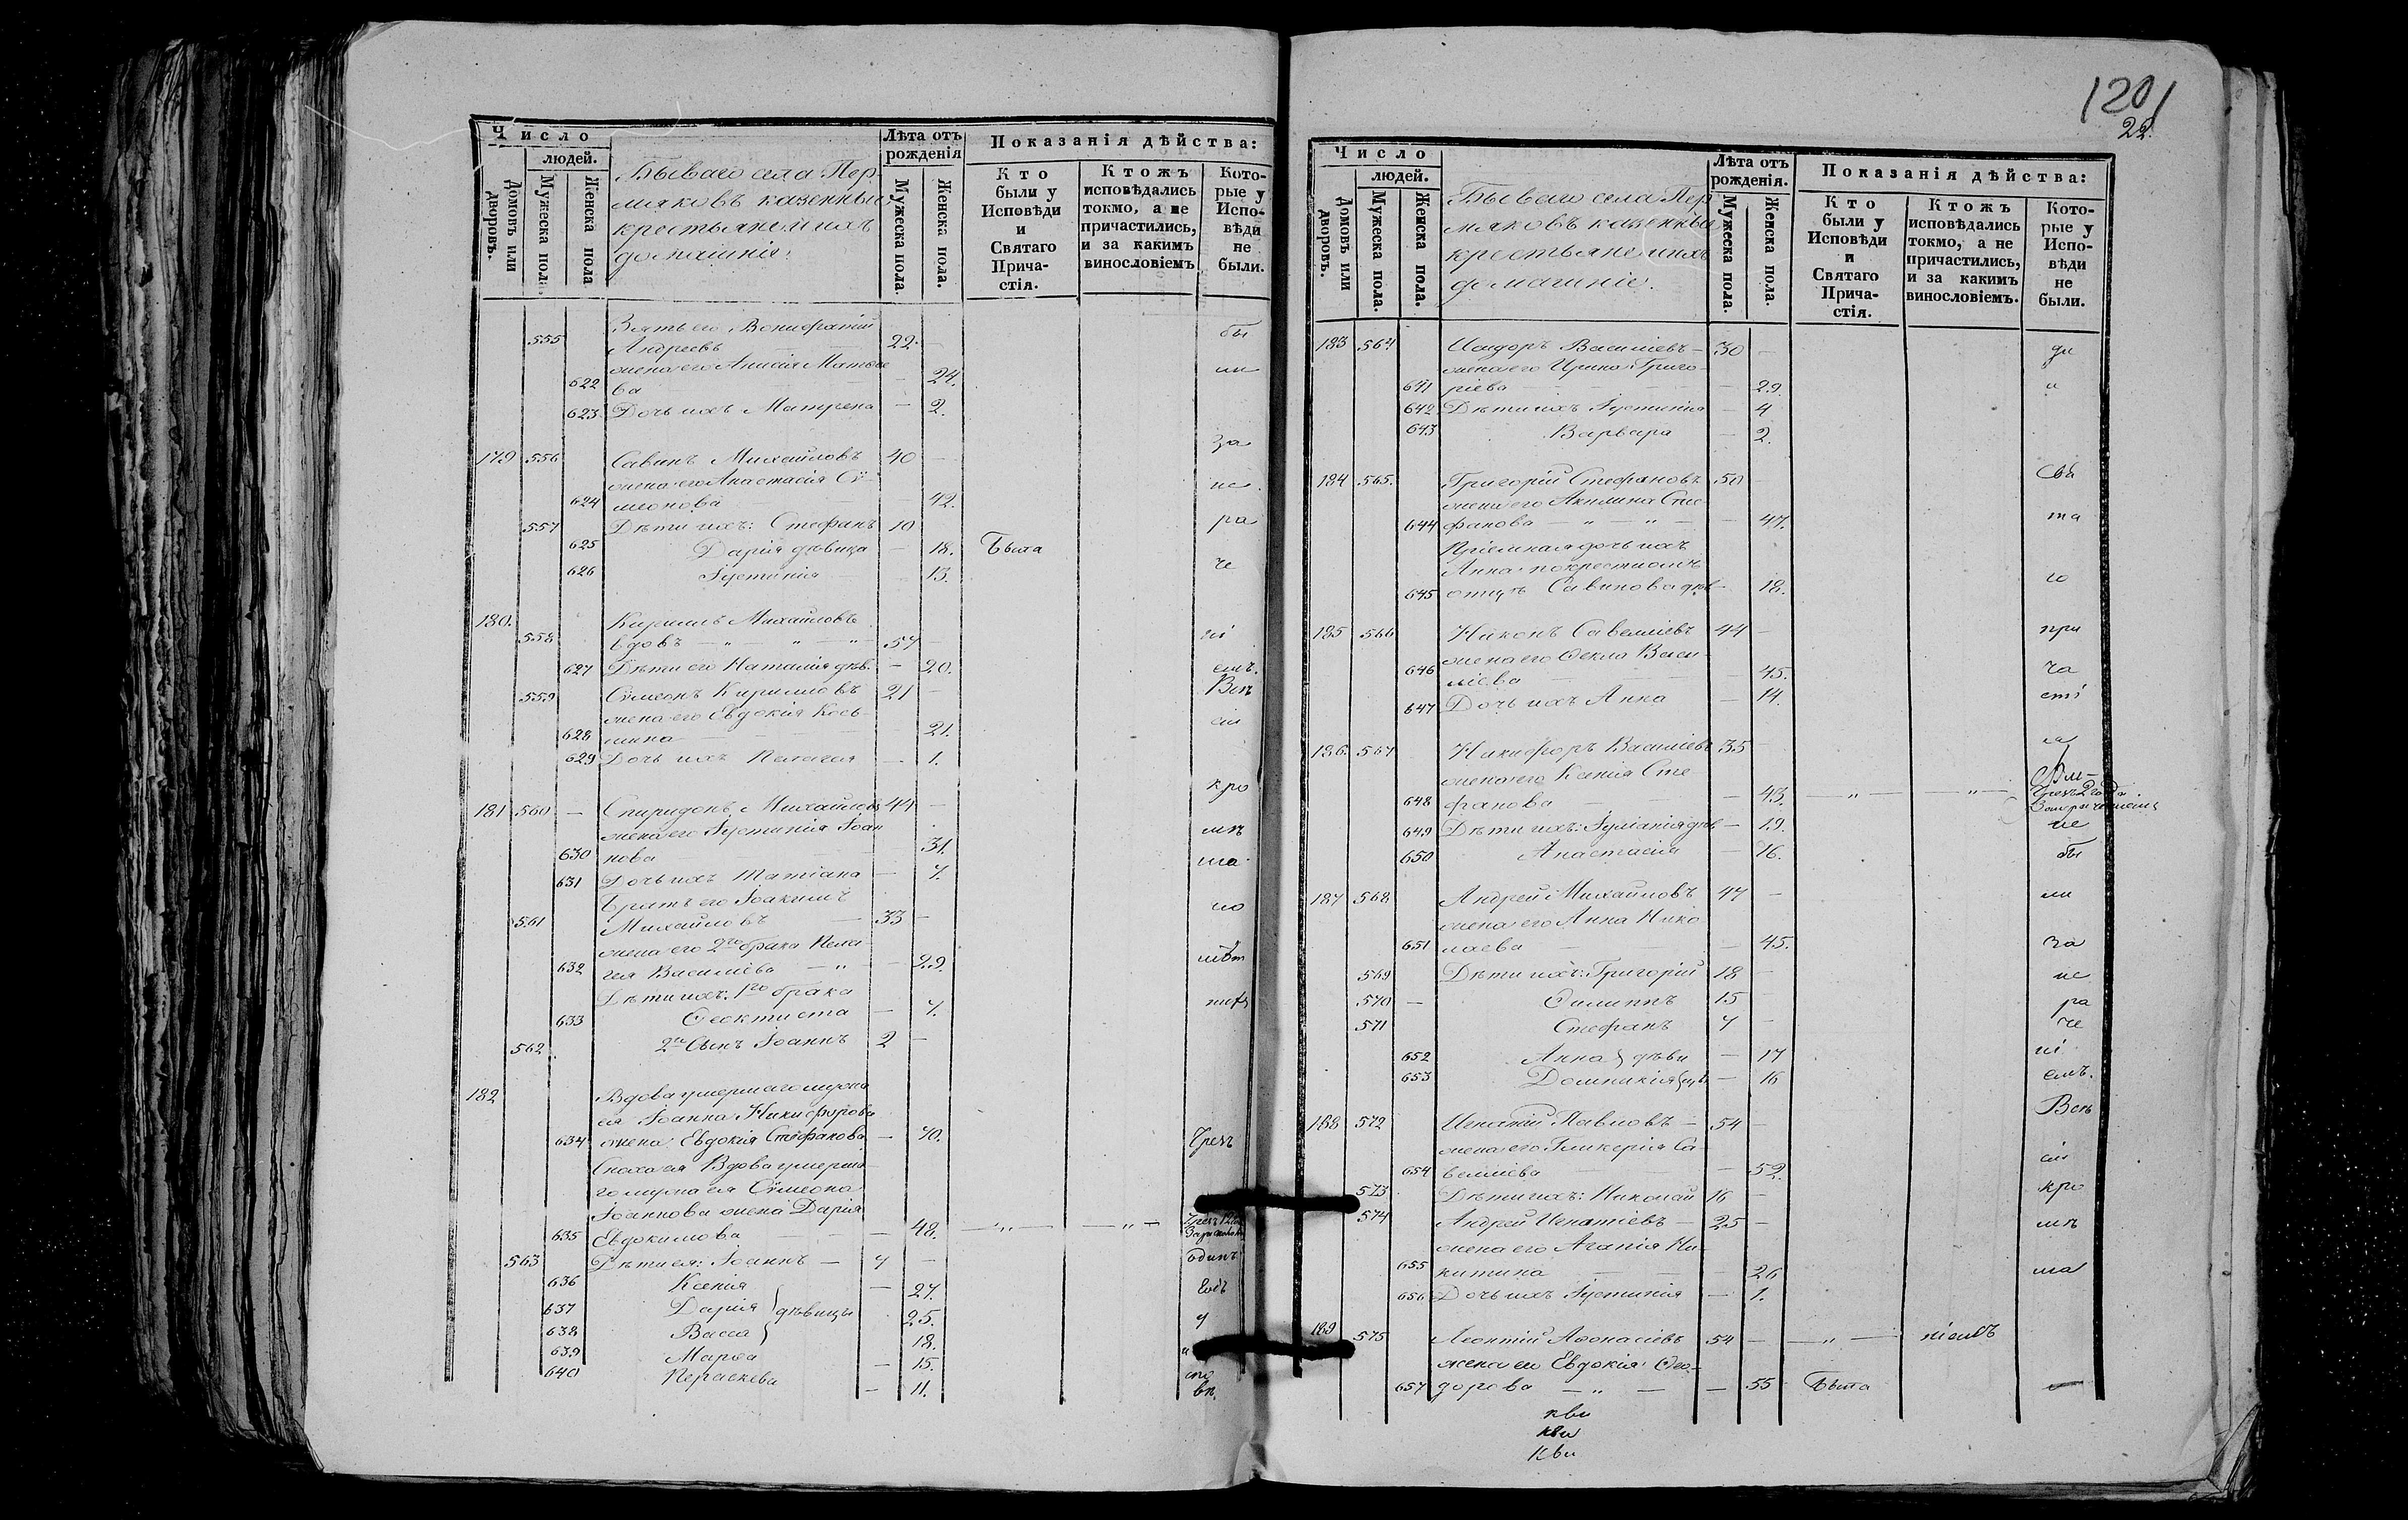 Число
людей.
Домовъ или дворовъ.
Мужеска пола.
Женска пола
Бывшаго села Пер-
мяковъ казенныи
крестьяне и ихъ
домашнiя.
Лѣта отъ рожденія
Мужеска пола.
Женска пола.
Показанія дѣйства:
Кто были у Исповѣди и Святаго Прича-стія.
Ктожъ исповѣдались токмо, а не причастились, и за какимъ винословіемъ
Кото-рые у Испо-вѣди не были.
Зять его Вонифатій
555 Андреевъ 22 — бы
жена его Анисія Матвѣе
622 ва — 24. ли
623 Дочь ихъ Матрена — 2.
за
179 556 Савинъ Михайловъ 40 —
жена его Анастасія Сѵ-
624 меонова — 42. не
557 Дѣти ихъ: Стефанъ 10 ра
625 Дарія дѣвица — 18. Была
626 Іустинія 13. че
180. Кирилъ Михайловъ
558 вдовъ — " " — " 57 — ні
627 Дѣти его Наталія дѣв. — 20. емъ.
559 Сѵмеонъ Кириловъ 21 — Всѣ
жена его Евдокія Кось-
628 мина 21. сіи
629 Дочь ихъ Пелагея — 1.
кро
181 560 — Спиридонъ Михайловъ 44 —
жена его Іустинія Іоан
630 нова 31. мѣ
631 Дочь ихъ Татіана — 7. ма
Братъ его Іоакимъ
561 Михайловъ — 33 — ло
жена его 2го брака Пела
632 гея Василіева — " — 29. лѣт
Дѣти ихъ: 1го брака
633 Ѳеоктиста — 7.
562 2го Сынъ Іоаннъ 2 —
182 Вдова умершаго мужа
ея Іоанна Никифорова
634 жена Евдокія Стефанова — 70. Чрезъ
Сноха ея Вдова умерша
го мужа ея Сѵмеона
Іоаннова жена Дарія
635 Евдокимова — 48. — " — — " —
563 Дѣти ея: Іоаннъ — 7 — одинъ
636 Ксенія — 27. годъ
637 Дарія } дѣвицы 25. у
638 Васса } 18.
639 Марѳа — 15.
640 Пераскева — 11.
1201
22.
Число
людей.
Домовъ или дворовъ.
Мужеска пола.
Женска пола.
Бывшаго села Пер
мяковъ казенныи
крестьяне и ихъ
домашніе.
Лѣта отъ рожденія.
Мужеска пола.
Женска пола.
Показанія дѣйства:
Кто были у Исповѣди и Святаго Прича-стія.
Ктожъ исповѣдались токмо, а не причастились, и за какимъ винословіемъ.
Кото-рые у Испо-вѣди не были.
183 564 Исидоръ Василіевъ — 30 — ди
жена его Ирина Григо-
641 ріева — 29. и
642 Дѣти ихъ Іустинія — 4
643 Варвара — 2.
184 565. Григорій Стефановъ 50 — Свя
жена его Акилина Сте-
644 фанова — " — " — 47. та
Пріемная дочь ихъ
Анна по крестномъ
645 отцѣ Савинова дѣв — 18. го
185 566 Никонъ Савеліевъ 44 — при
жена его Ѳекла Васи-
646 ліева — 45. ча
647 Дочь ихъ Анна — 14. сті
186. 567 Никифоръ Василіевъ 35 я
жена его Ксенія Сте
648 фанова — 43. — " — — " —
649 Дѣти ихъ: Іуліанія дѣв — 19. не
650 Анастасія — 16. бы
187 568 Андрей Михайловъ 47 — ли
жена его Анна Нико
651 лаева — 45. за
569 Дѣти ихъ: Григорій 18 — не
570 — Филиппъ 15 ра
571 Стефанъ 7 — че
652 Анна } дѣви — 17 ні
653 Домникія } цы — 16 емъ.
Всѣ
188 572 Игнатій Павловъ — 54 —
жена его Гликерія Са-
654 веліева — 52. сіи
573 Дѣти ихъ: Николай 16 — кро
574 Андрей Игнатіевъ — 25 — мѣ
жена его Агапія Ни-
655 китина — 26 ма
656 Дочь ихъ Іустинія — 1.
189 575 Леонтій Аѳонасіевъ 54 — — " —
жена его Евдокія Ѳео-
657 дорова — " — — 55 Была —